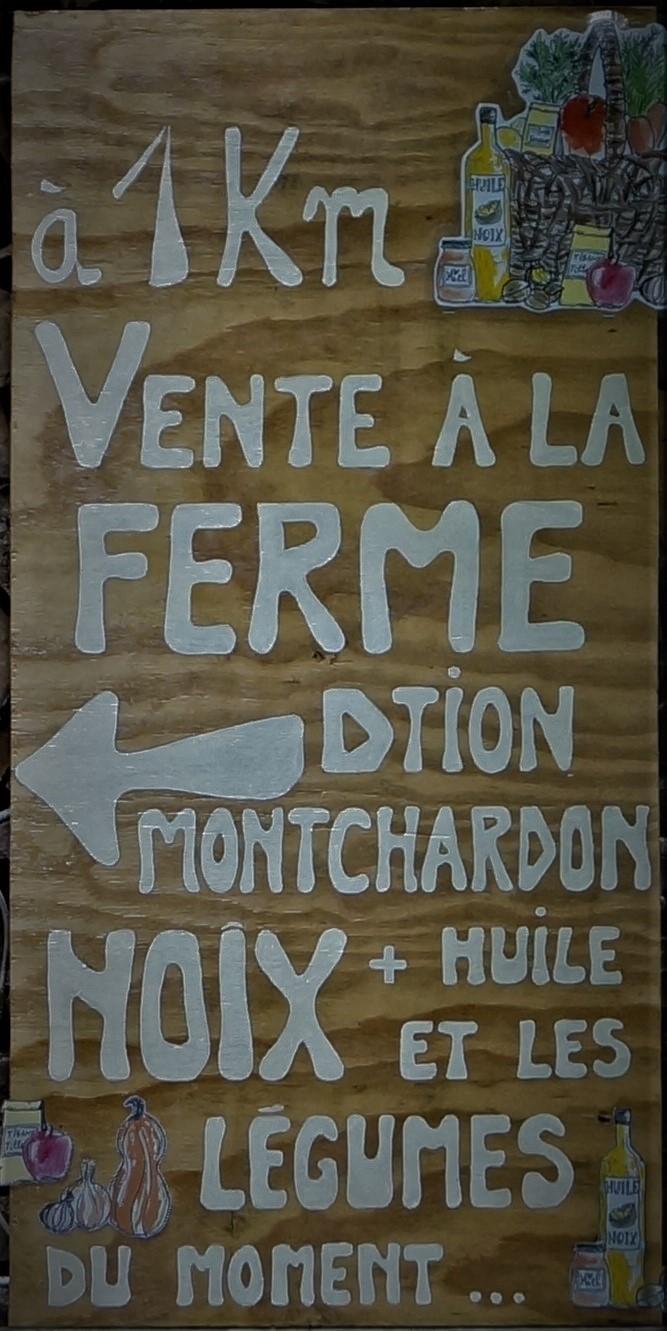 à 1Km
HUILE
NOIX
Miel
VENTE À LA
FERME
DTION
MONTCHARDON
NOIX + HUILE
ET LES
LÉGUMES
HUILE
NOIX
Miel
DU MOMENT ...